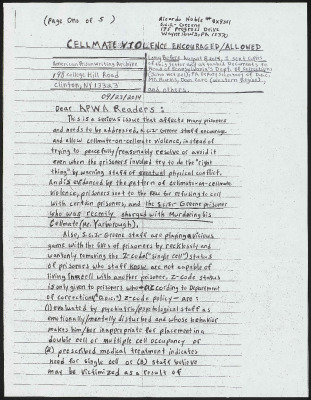 (Page One of 5)
Ricardo Noble #BX9351
S.C.I.-Greene
175 Progress Drive
Waynesburg, PA 15370
CELLMATE VIOLENCE ENCOURAGED/ALLOWED
American Prison Writing Archive
198 College Hill Road
Clinton, NY 13323
09/23/2014
and others.
Dear APWA Readers:
This is a serious issue that affects many prisoners
and needs to be addressed. S.C.I.-Greene staff encourage
and allow cellmate-on-cellmate violence, instead of
trying to peacefully/reasonably resolve or avoid it
even when the prisoners involved try to do the "right
thing" by warning staff of eventual physical conflict.
And is evidenced by the pattern of cellmate-on-cellmate
violence, prisoners sent to the RHU for refusing to cell
with certain prisoners, and the S.C.I.-Greene prisoner
who was recently charged with Murdering his
Cellmate (Mr. Yarbrough).
Also, S.C.I.-Greene staff are playing a vicious
game with the lives of prisoners by recklessly and
wantonly removing the Z-code ("single cell") status
of prisoners who staff know are not capable of
living in a cell with another prisoner. Z-code status
is only given to prisoners who - according to Department
of corrections ("D.O.C.") Z-code policy - are:
(1) evaluated by psychiatric/psychological staff as
emotionally/mentally disturbed and whose behavior
makes him/her inappropriate for placement in a
double cell or multiple cell occupancy or
(2) prescribed medical treatment indicates
need for single cell or (3) staff believe
may be victimized as a result of